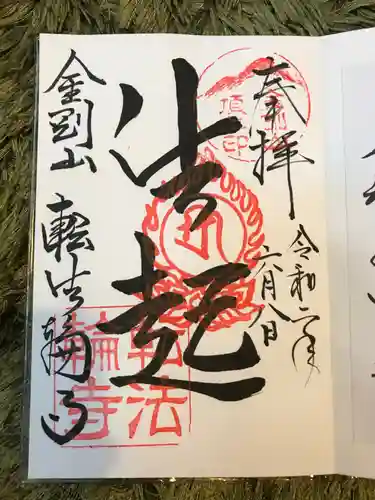 奉拝
令和二年
六月八日
法起
金剛山
転法輪寺
頂
印
転法
輪寺